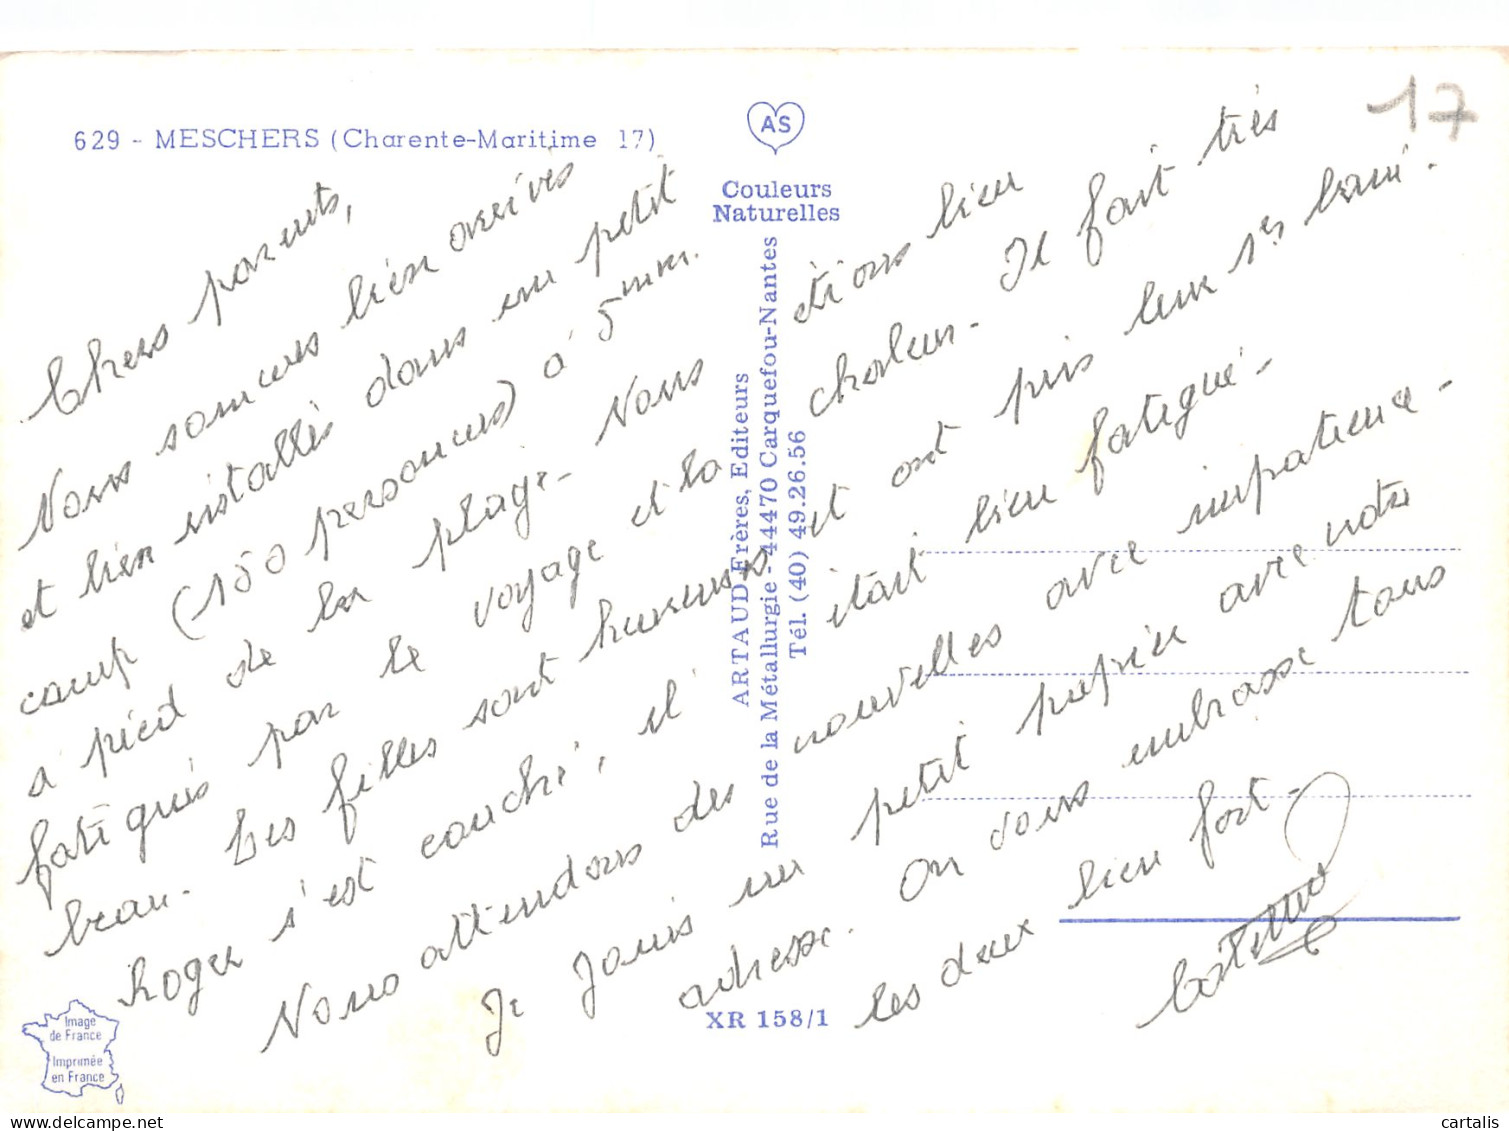 629 - MESCHERS (Charente-Maritime 17)
17
AS
Couleurs
Naturelles
Chers parents,
Nous sommes bien arrivés
et bien installés dans un petit
camp (150 personnes) à 5 mm.
à pied de la plage. Nous étions bien
fatigués par le voyage et la chaleur. Il fait très
beau. Les filles sont heureuses et ont pris leur 1er bain.
Roger s'est couché, il était bien fatigué.
Nous attendons des nouvelles avec impatience.
Je Jouis un petit papier avec notre
adresse. On vous embrasse tous
les deux bien fort.
ARTAUD Frères, Editeurs
Rue de la Métallurgie - 44470 Carquefou-Nantes
Tél. (40) 49.26.56
XR 158/1
Image
de France
Imprimée
en France
cartalis